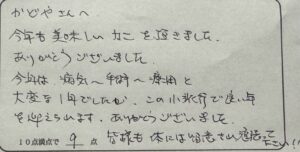 かどやさんへ
今年も美味しいカニを頂きました。
ありがとうございました。
今年は病気～手術～療用と
大変な1年でしたが、この小旅行で良い年
を迎えられます。ありがとうございました。
10点満点で 9 点 皆様も体には留意され過して
ください!!